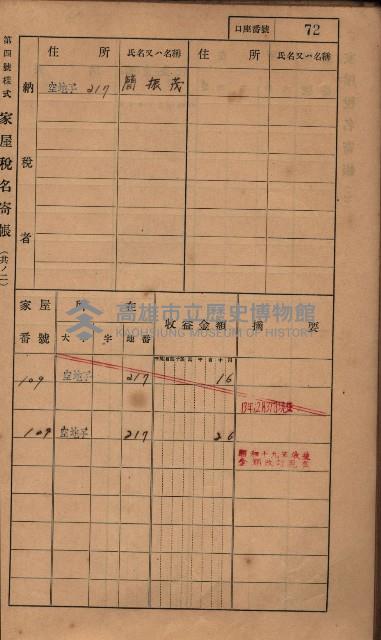 口座番號 72
第四號樣式 家屋稅名寄帳 (共ノ二)
納稅者
住所 氏名又ハ名稱 住所 氏名又ハ名稱
空地子 217 簡振茂
家屋番號 所在 收益金額 摘要
大字 字 地番
109 空地子 217 16
109 空地子 217 26
高雄市立歷史博物館
KAOHSIUNG MUSEUM OF HISTORY